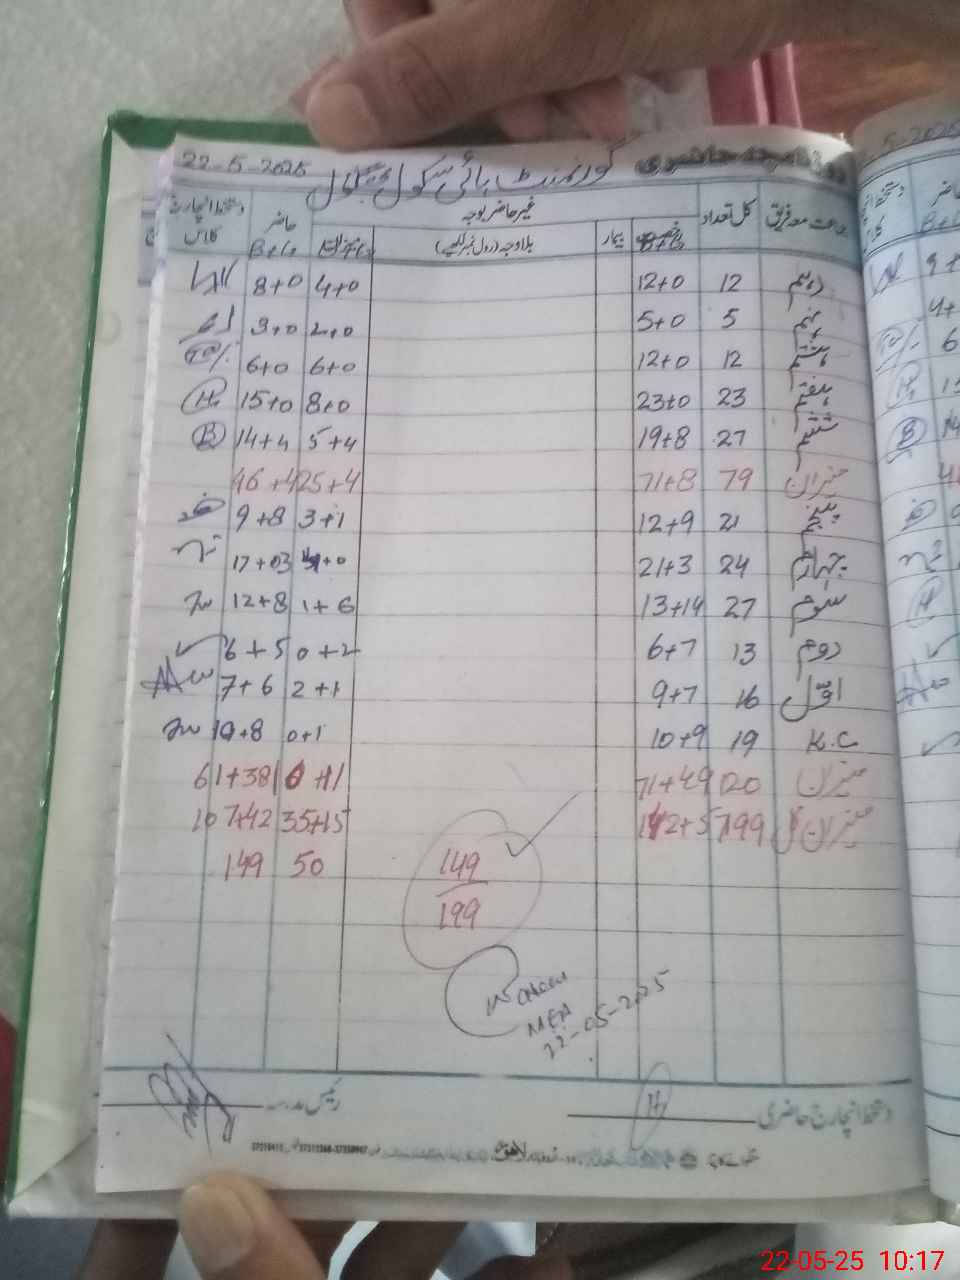 روزنامچہ حاضری گورنمنٹ ہائی سکول 22-5-2025
جماعت معہ فریق کل تعداد غیر حاضر بوجہ حاضر دستخط انچارج کلاس
B+G بیمار بلاوجہ (رول نمبر لکھیے) B+G
دہم 12 12+0 4+0 8+0
نہم 5 5+0 2+0 3+0
ہشتم 12 12+0 6+0 6+0
ہفتم 23 23+0 8+0 15+0
ششم 27 19+8 5+4 14+4 B
میزان 79 71+8 25+4 46+4
پنجم 21 12+9 3+1 9+8
چہارم 24 21+3 4+0 17+03
سوم 27 13+14 1+6 12+8
دوم 13 6+7 0+2 6+5
اوّل 16 9+7 2+1 7+6
K.C 19 10+9 0+1 10+8
میزان 120 71+49 10+11 61+38
میزان کل 199 142+57 35+15 107+42
50 149
149
199
MEA
22-05-2025
دستخط انچارج حاضری H رئیس مدرسہ
لاہور
22-05-25 10:17